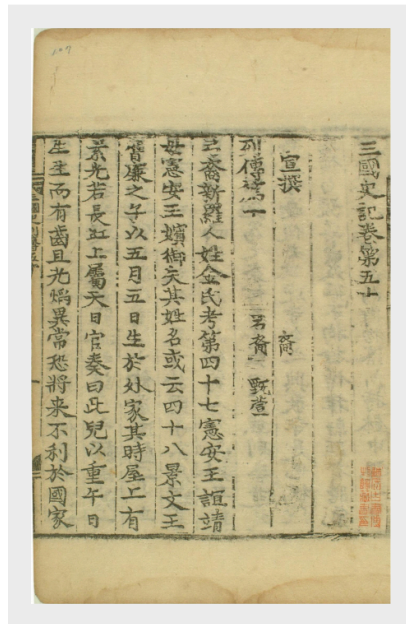 三國史記卷第五十
宣撰
列傳第十
弓裔 甄萱
弓裔新羅人姓金氏考第四十七憲安王誼靖
母憲安王嬪御失其姓名或云四十八景文王
膺廉之子以五月五日生於外家其時屋上有
素光若長虹上屬天日官奏曰此兒以重午日
生生而有齒且光焰異常恐將来不利於國家